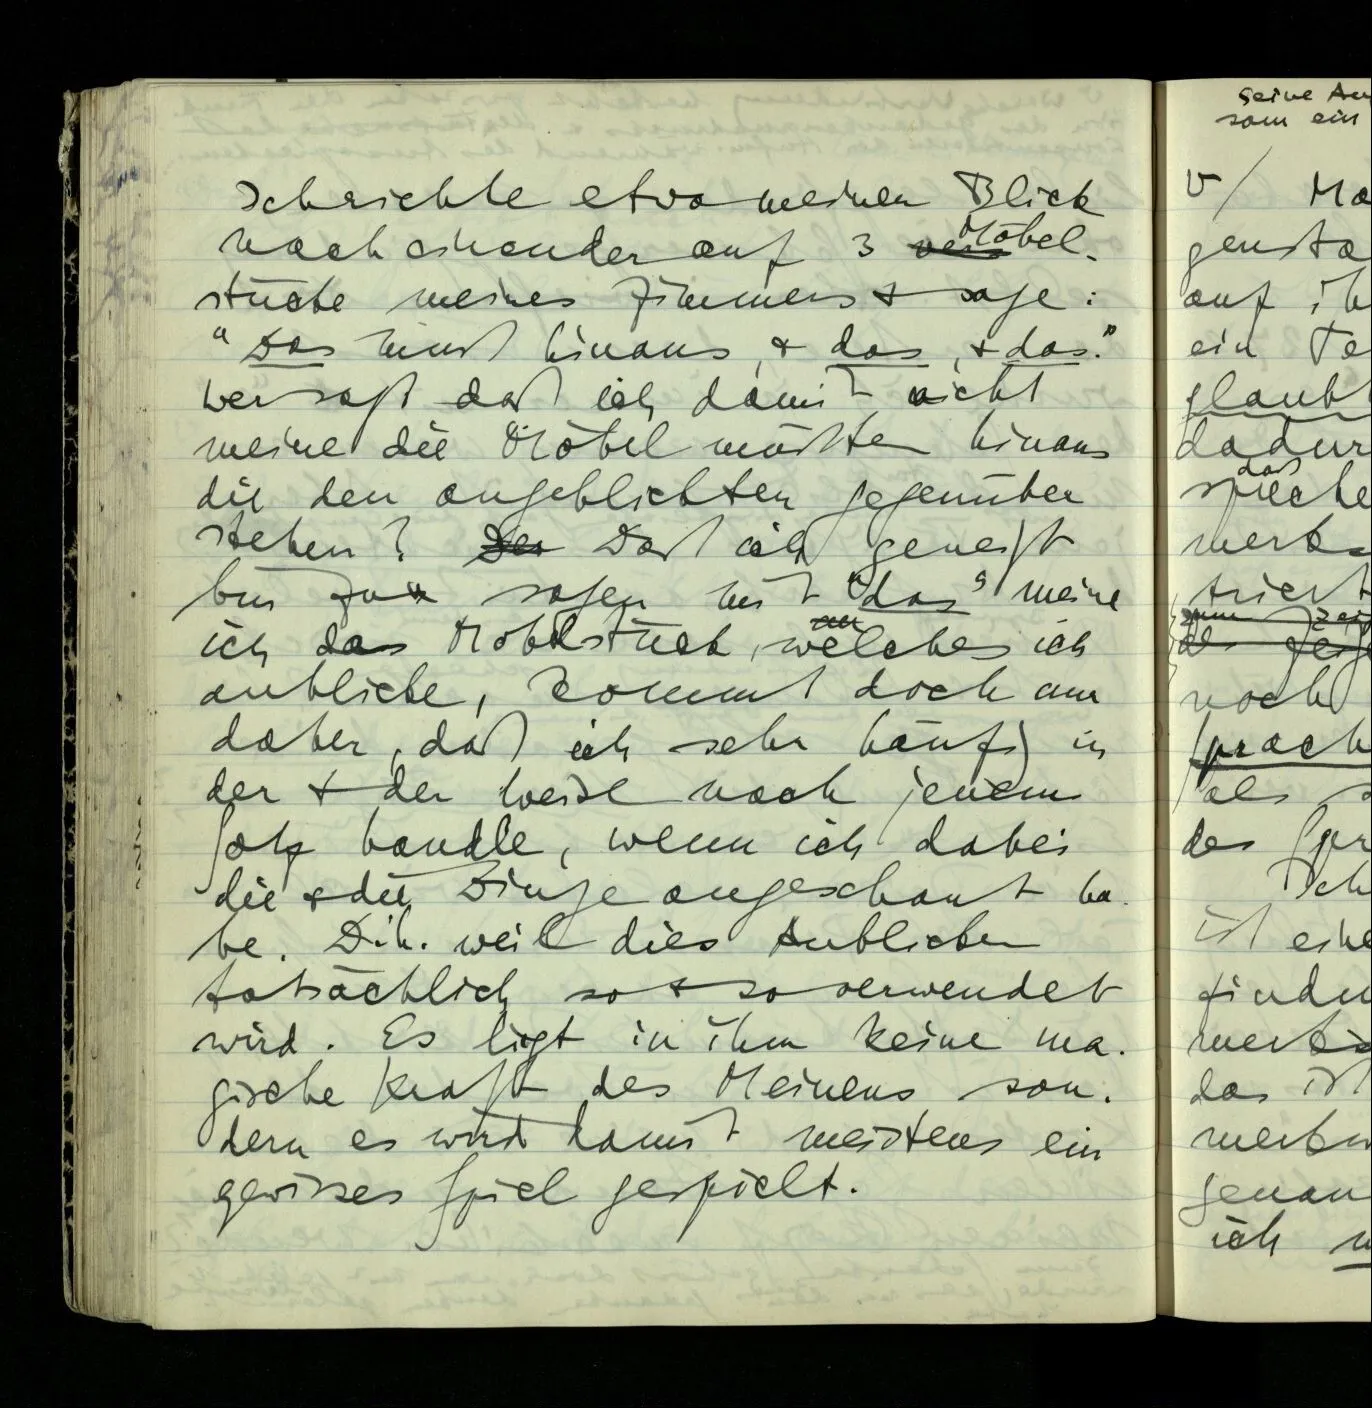 Ich richte etwa meinen Blick
nacheinander auf 3 Möbel-
stücke meines Zimmers & sage:
"Das muß hinaus, & das, & das."
Wer sagt daß ich damit nicht
meine die Möbel müßten hinaus
die den angeblickten gegenüber
stehen? Der Daß ich geneigt
bin zu sagen mit "das" meine
ich das Möbelstück, welches ich
anblicke, kommt doch nur
daher, daß ich sehr häufig in
der & der Weise nach jenem
Satz handle, wenn ich dabei
die & die Dinge angeschaut ha-
be. D.h. weil dies Anblicken
tatsächlich so & so verwendet
wird. Es ligt in ihm keine ma-
gische Kraft des Meinens son-
dern es wird damit meistens ein
gewisses Spiel gespielt.
seine
som ein
V/
auf
ein
noch
des
ist
das
ich